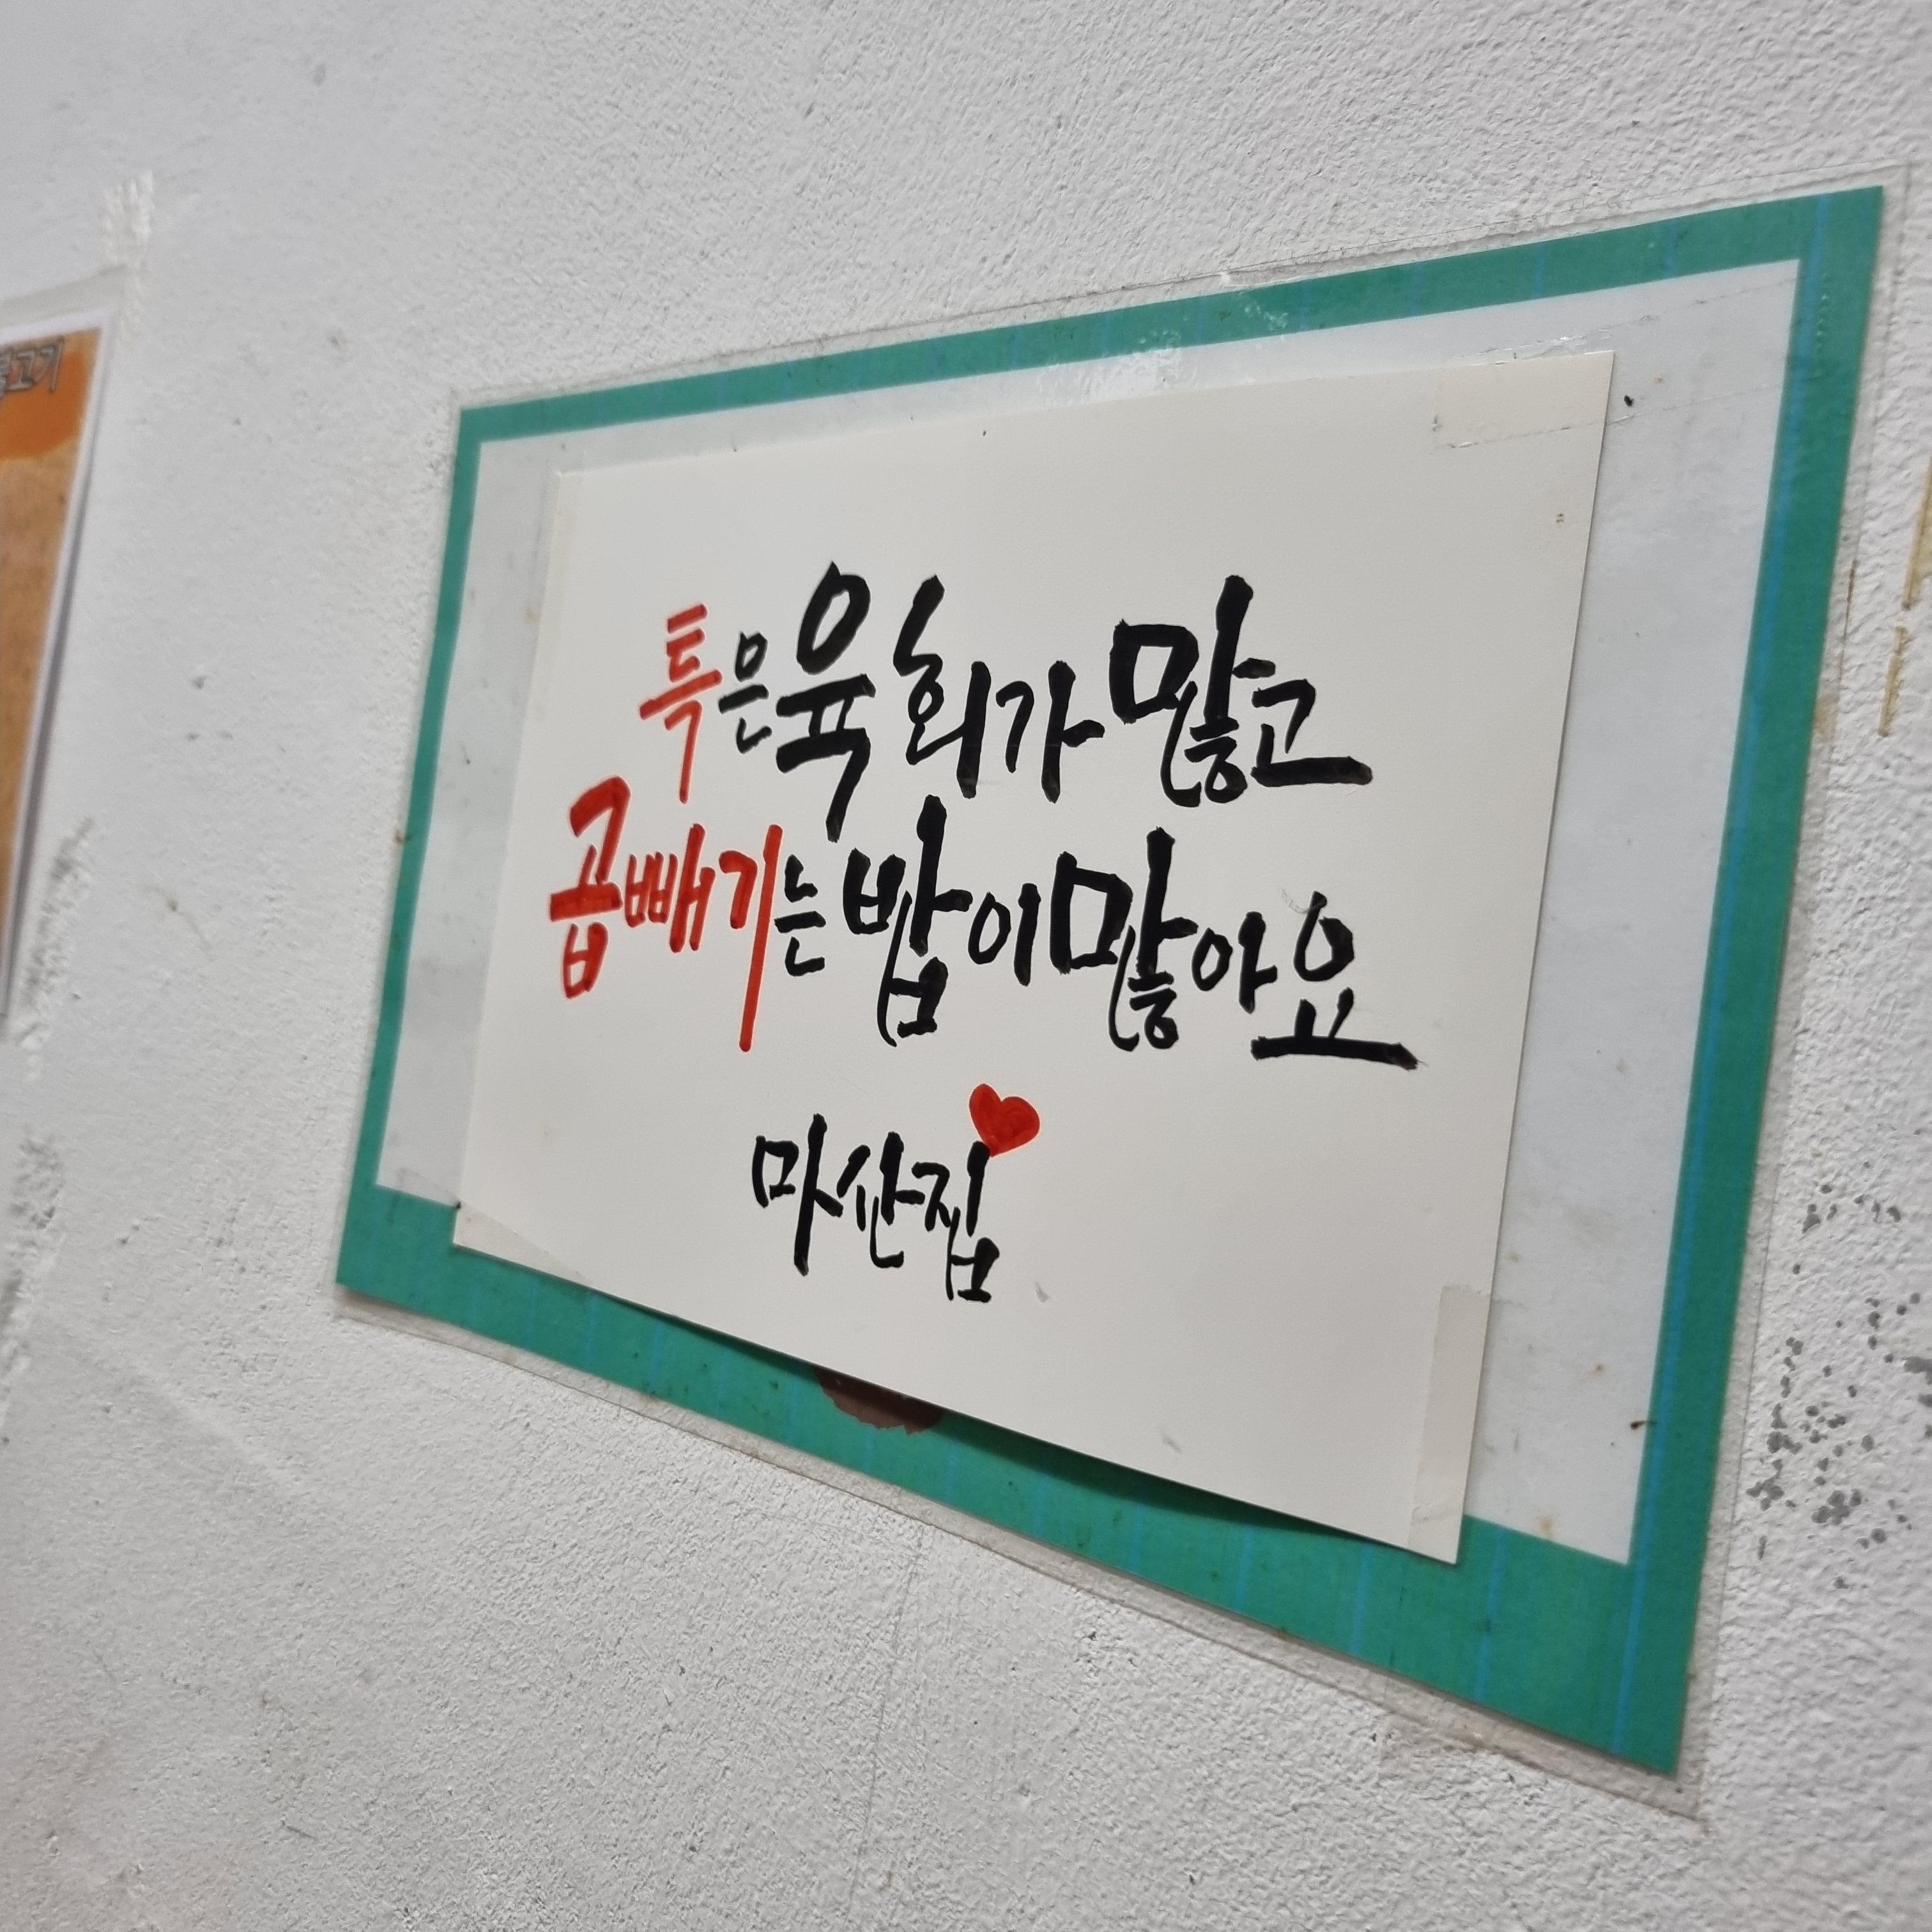 특은 육회가 많고
곱빼기는 밥이 많아요
마산집